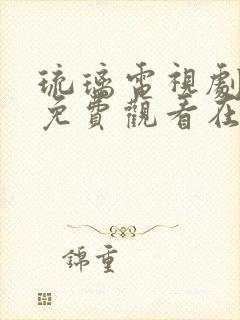 琉璃電視劇
免費觀看在
錦重